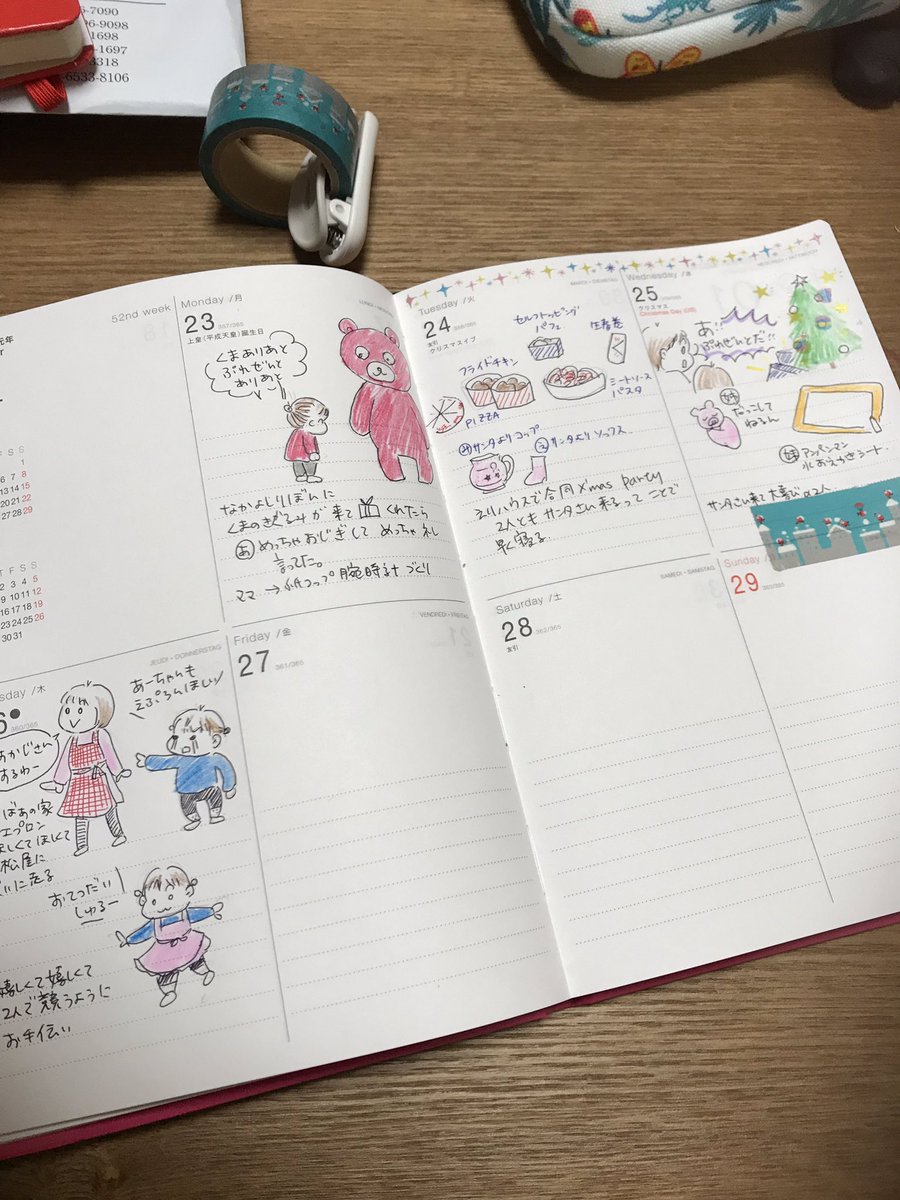 6-7090
6-9098
-1698
-1697
3318
-6533-8106
52nd week
元年
Monday /月
23 357/365
上皇(平成天皇)誕生日
くまありあと
ぷれぜんと
ありあと
なかよしりぼんに
くまのきぐるみが来て
くれたら
あ めっちゃおじぎして めっちゃ
言ってた。
ママ → 紙コップ腕時計づくり
MARDI・DIENSTAG
Tuesday /火
24 358/365
友引
クリスマスイブ
セルフトッピング
パフェ
生春巻
フライドチキン
PIZZA
ミートソース
パスタ
サンタよりコップ
サンタよりソックス
ハウスで合同X'mas Party
2人とも サンタさん来るってことで
早く寝る。
Wednesday /水
25 359/365
Christmas Day (US)
クリスマス
あ!!
ぷれぜんとだ!!
姉
だっこして
ねるん
妹 アンパンマン
水おえかきシート
サンタさん来て大喜びの2人
F S S
1
6 7 8
13 14 15
20 21 22
27 28 29
T F S S
2 3 4 5
9 10 11 12
16 17 18 19
23 24 25 26
30 31
JEUDI・DONNERSTAG
sday /木
6 360/365
あーちゃんも
えぷろんほしい
あかじさん
するわー
ばあの家
エプロン
しくてほしくて
松屋に
いに走る
おてつだい
しゅるー
嬉しくて嬉しくて
2人で競うように
お手伝い
VENDREDI・FREITAG
Friday /金
27 361/365
SAMEDI・SAMSTAG
Saturday /土
28 362/365
友引
Sunday
29 363/365